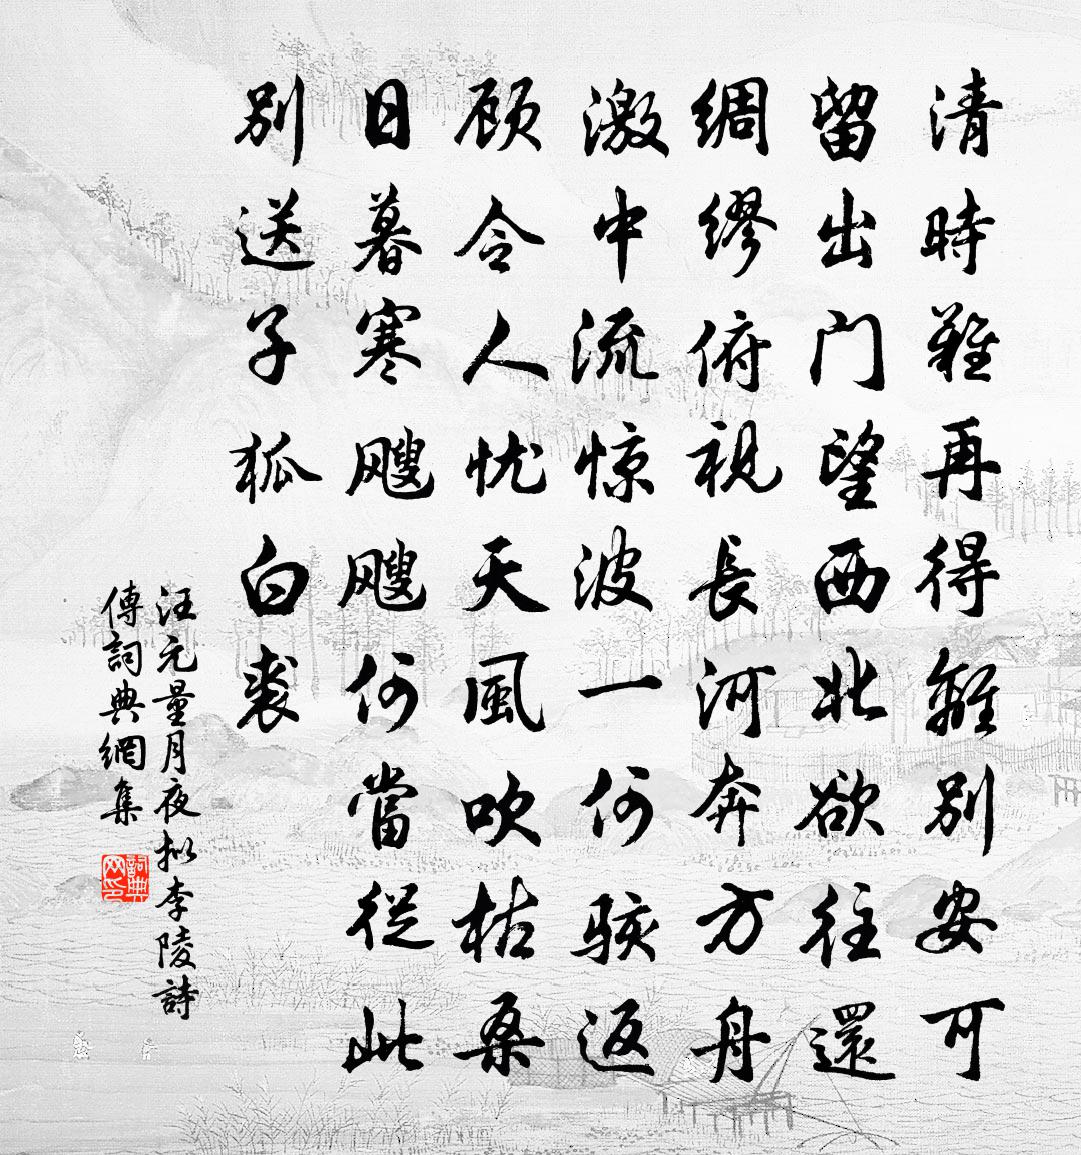 清時難再得離別安可
留出门望西北欲往還
綢繆俯視長河奔方舟
激中流惊波一何駭返
顾令人忧天風吹枯桑
日暮寒飕飕何當從此
别送子狐白裘
汪元量月夜拟李陵詩
傳詞典網集
詞典网印